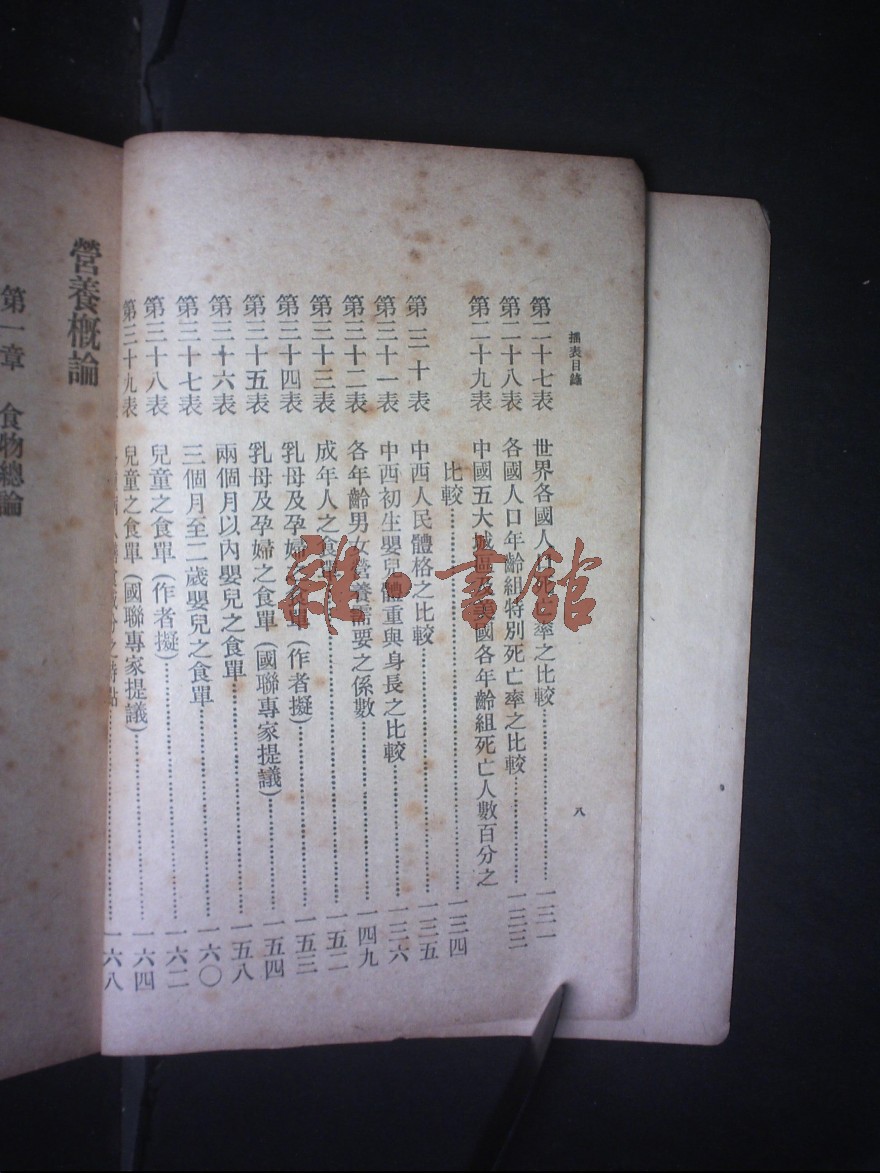 插表目錄
八
第二十七表 世界各國人口死亡率之比較……一三一
第二十八表 各國人口年齡組特別死亡率之比較……一三三
第二十九表 中國五大城市及美國各年齡組死亡人數百分之
比較……一三四
第三十表 中西人民體格之比較……一三五
第三十一表 中西初生嬰兒體重與身長之比較……一三六
第三十二表 各年齡男女營養需要之係數……一四九
第三十三表 成年人之食單……一五二
第三十四表 乳母及孕婦之食單(作者擬)……一五三
第三十五表 乳母及孕婦之食單(國聯專家提議)……一五四
第三十六表 兩個月以內嬰兒之食單……一五八
第三十七表 三個月至二歲嬰兒之食單……一六〇
第三十八表 兒童之食單(作者擬)……一六二
第三十九表 兒童之食單(國聯專家提議)……一六四
之特點……一六八
營養概論
第一章 食物總論
雜·書館